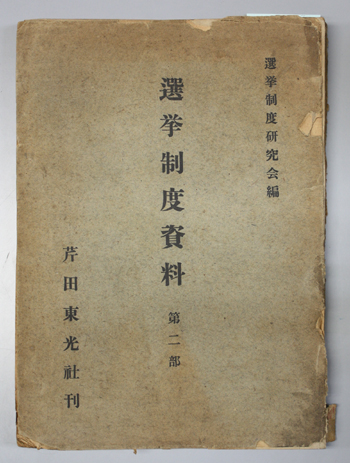 選挙制度研究会編
選挙制度資料
第二部
芹田東光社刊